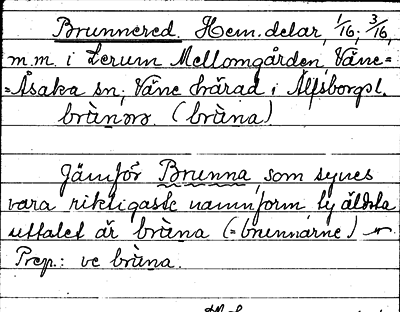 Brunnered. Hem.delar, 1/16, 3/16,
m.m. i Lerum Mellomgården, Väne=
=Åsaka sn, Väne härad i Älfsborgs l.
(bràna)
Jämför Brunna, som synes
vara riktigaste namnform ty äldsta
uttalet är bràna (=brunnarne)
Prep.: ve bràna.